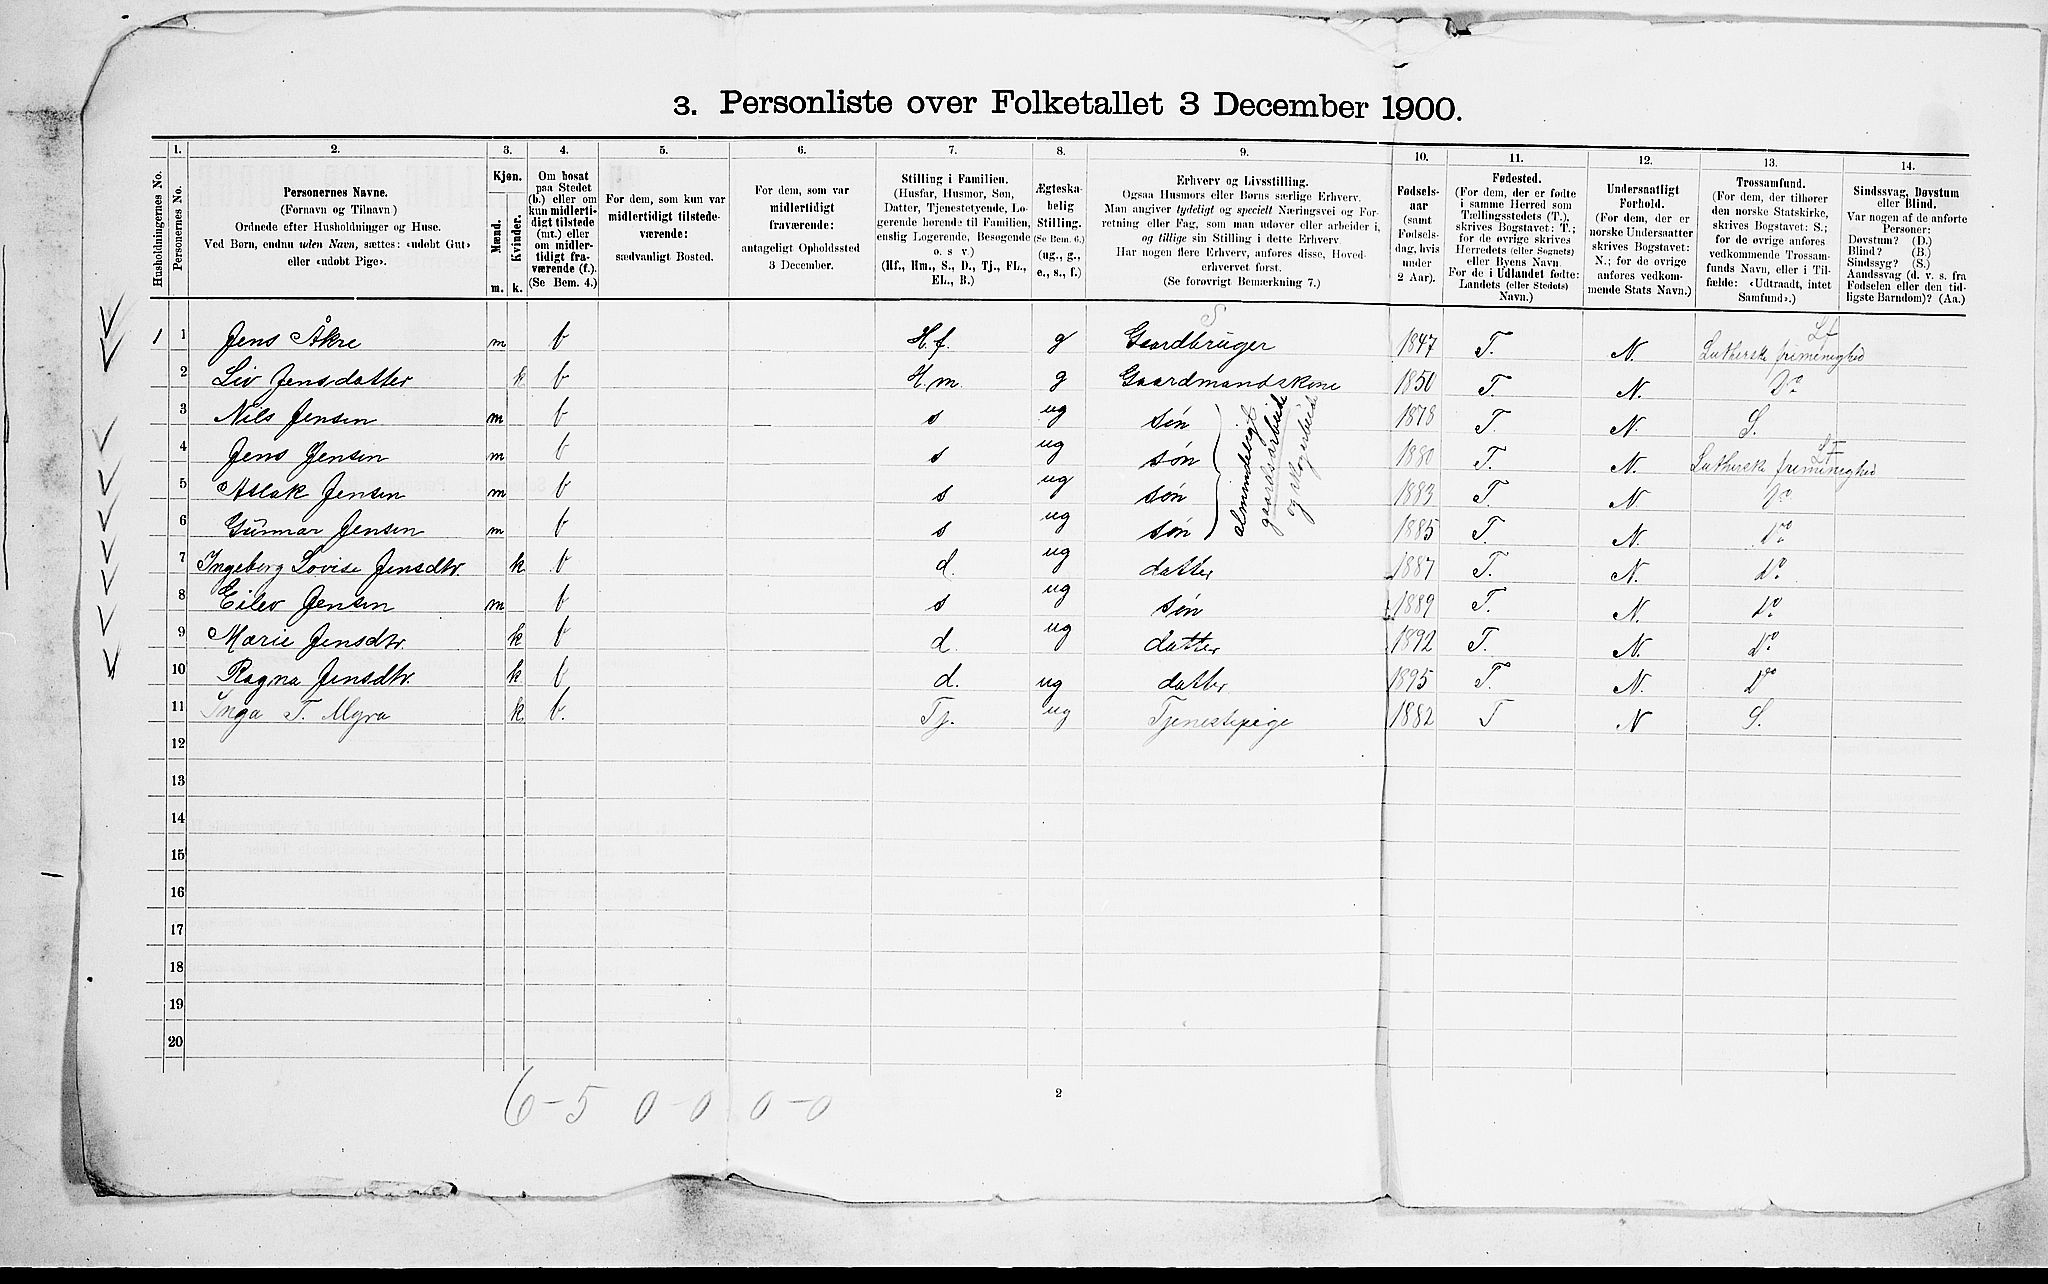 3. Personliste over Folketallet 3 December 1900.
1. 2. 3. 4. 5. 6. 7. 8. 9. 10. 11. 12. 13. 14.
Husholdningernes No.
Personernes No.
Personernes Navne.
(Fornavn og Tilnavn)
Ordnede efter Husholdninger og Huse.
Ved Børn, endnu uden Navn, sættes: «udøbt Gut»
eller «udøbt Pige».
Kjøn.
Mænd.
Kvinder.
m. k.
Om bosat
paa Stedet
(b.) eller om
kun midlerti-
digt tilstede
(mt.) eller
om midler-
tidigt fra-
værende (f.).
(Se Bem. 4.)
For dem, som kun var
midlertidigt tilstede-
værende:
sædvanligt Bosted.
For dem, som var
midlertidigt
fraværende:
antageligt Opholdssted
3 December.
Stilling i Familien.
(Husfar, Husmor, Søn,
Datter, Tjenestetyende, Lo-
gerende hørende til Familien,
enslig Logerende, Besøgende
o. s. v.)
(Hf., Hm., S., D., Tj., FL.,
EL., B.)
Ægteska-
belig
Stilling.
(Se Bem. 6.)
(ug., g.,
e., s., f.)
Erhverv og Livsstilling.
Ogsaa Husmors eller Børns særlige Erhverv.
Man angiver tydeligt og specielt Næringsvei og For-
retning eller Fag, som man udøver eller arbeider i,
og tillige sin Stilling i dette Erhverv.
Har nogen flere Erhverv, anføres disse, Hoved-
erhvervet først.
(Se forøvrigt Bemærkning 7.)
Fødsels-
aar
(samt
Fødsels-
dag, hvis
under
2 Aar).
Fødested.
(For dem, der er fødte
i samme Herred som
Tællingsstedets (T.),
skrives Bogstavet: T.;
for de øvrige skrives
Herredets (eller Sognets)
eller Byens Navn.
For de i Udlandet fødte:
Landets (eller Stedets)
Navn.)
Undersaatligt
Forhold.
(For dem, der er
norske Undersaatter
skrives Bogstavet:
N.; for de øvrige
anføres vedkom-
mende Stats Navn.)
Trossamfund.
(For dem, der tilhører
den norske Statskirke,
skrives Bogstavet: S.;
for de øvrige anføres
vedkommende Trossam-
funds Navn, eller i Til-
fælde: «Udtraadt, intet
Samfund».)
Sindssvag, Døvstum
eller Blind.
Var nogen af de anførte
Personer:
Døvstum? (D.)
Blind? (B.)
Sindssyg? (S.)
Aandssvag (d. v. s. fra
Fødselen eller den tid-
ligste Barndom)? (Aa.)
S Lf
1 1 Jens Åkre m b H.f. g Gaardbruger 1847 T. N. Lutherske frimenighed
2 Liv Jensdatter k b H.m. g Gaardmandskone 1850 T. N. Do
3 Nils Jensen m b s ug søn 1878 T. N. S.
Lf
4 Jens Jensen m b s ug søn 1880 T. N. Lutherske frimenighed
5 Aslak Jensen m b s ug søn 1883 T. N. Do
6 Gunnar Jensen m b s ug søn 1885 T. N. Do
almindeligt
gaardsarbeide
og skogarbeide
7 Ingeberg Lovise Jensdtr. k b d. ug datter 1887 T. N. Do
8 Eilev Jensen m b s ug søn 1889 T. N. Do
9 Marie Jensdtr. k b d. ug datter 1892 T. N. Do
10 Ragna Jensdtr. k b d. ug datter 1895 T. N. Do
11 Inga T. Myra k. b. Tj. ug Tjenestepige 1882 T N S.
12
13
14
15
16
17
18
19
20
6-5 0-0 0-0
2